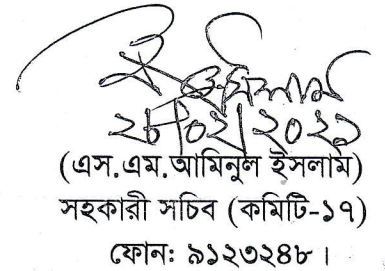 ২৮/০২/২০২১
(এস.এম.আমিনুল ইসলাম)
সহকারী সচিব (কমিটি-১৭)
ফোন: ৯১২৩২৪৮।